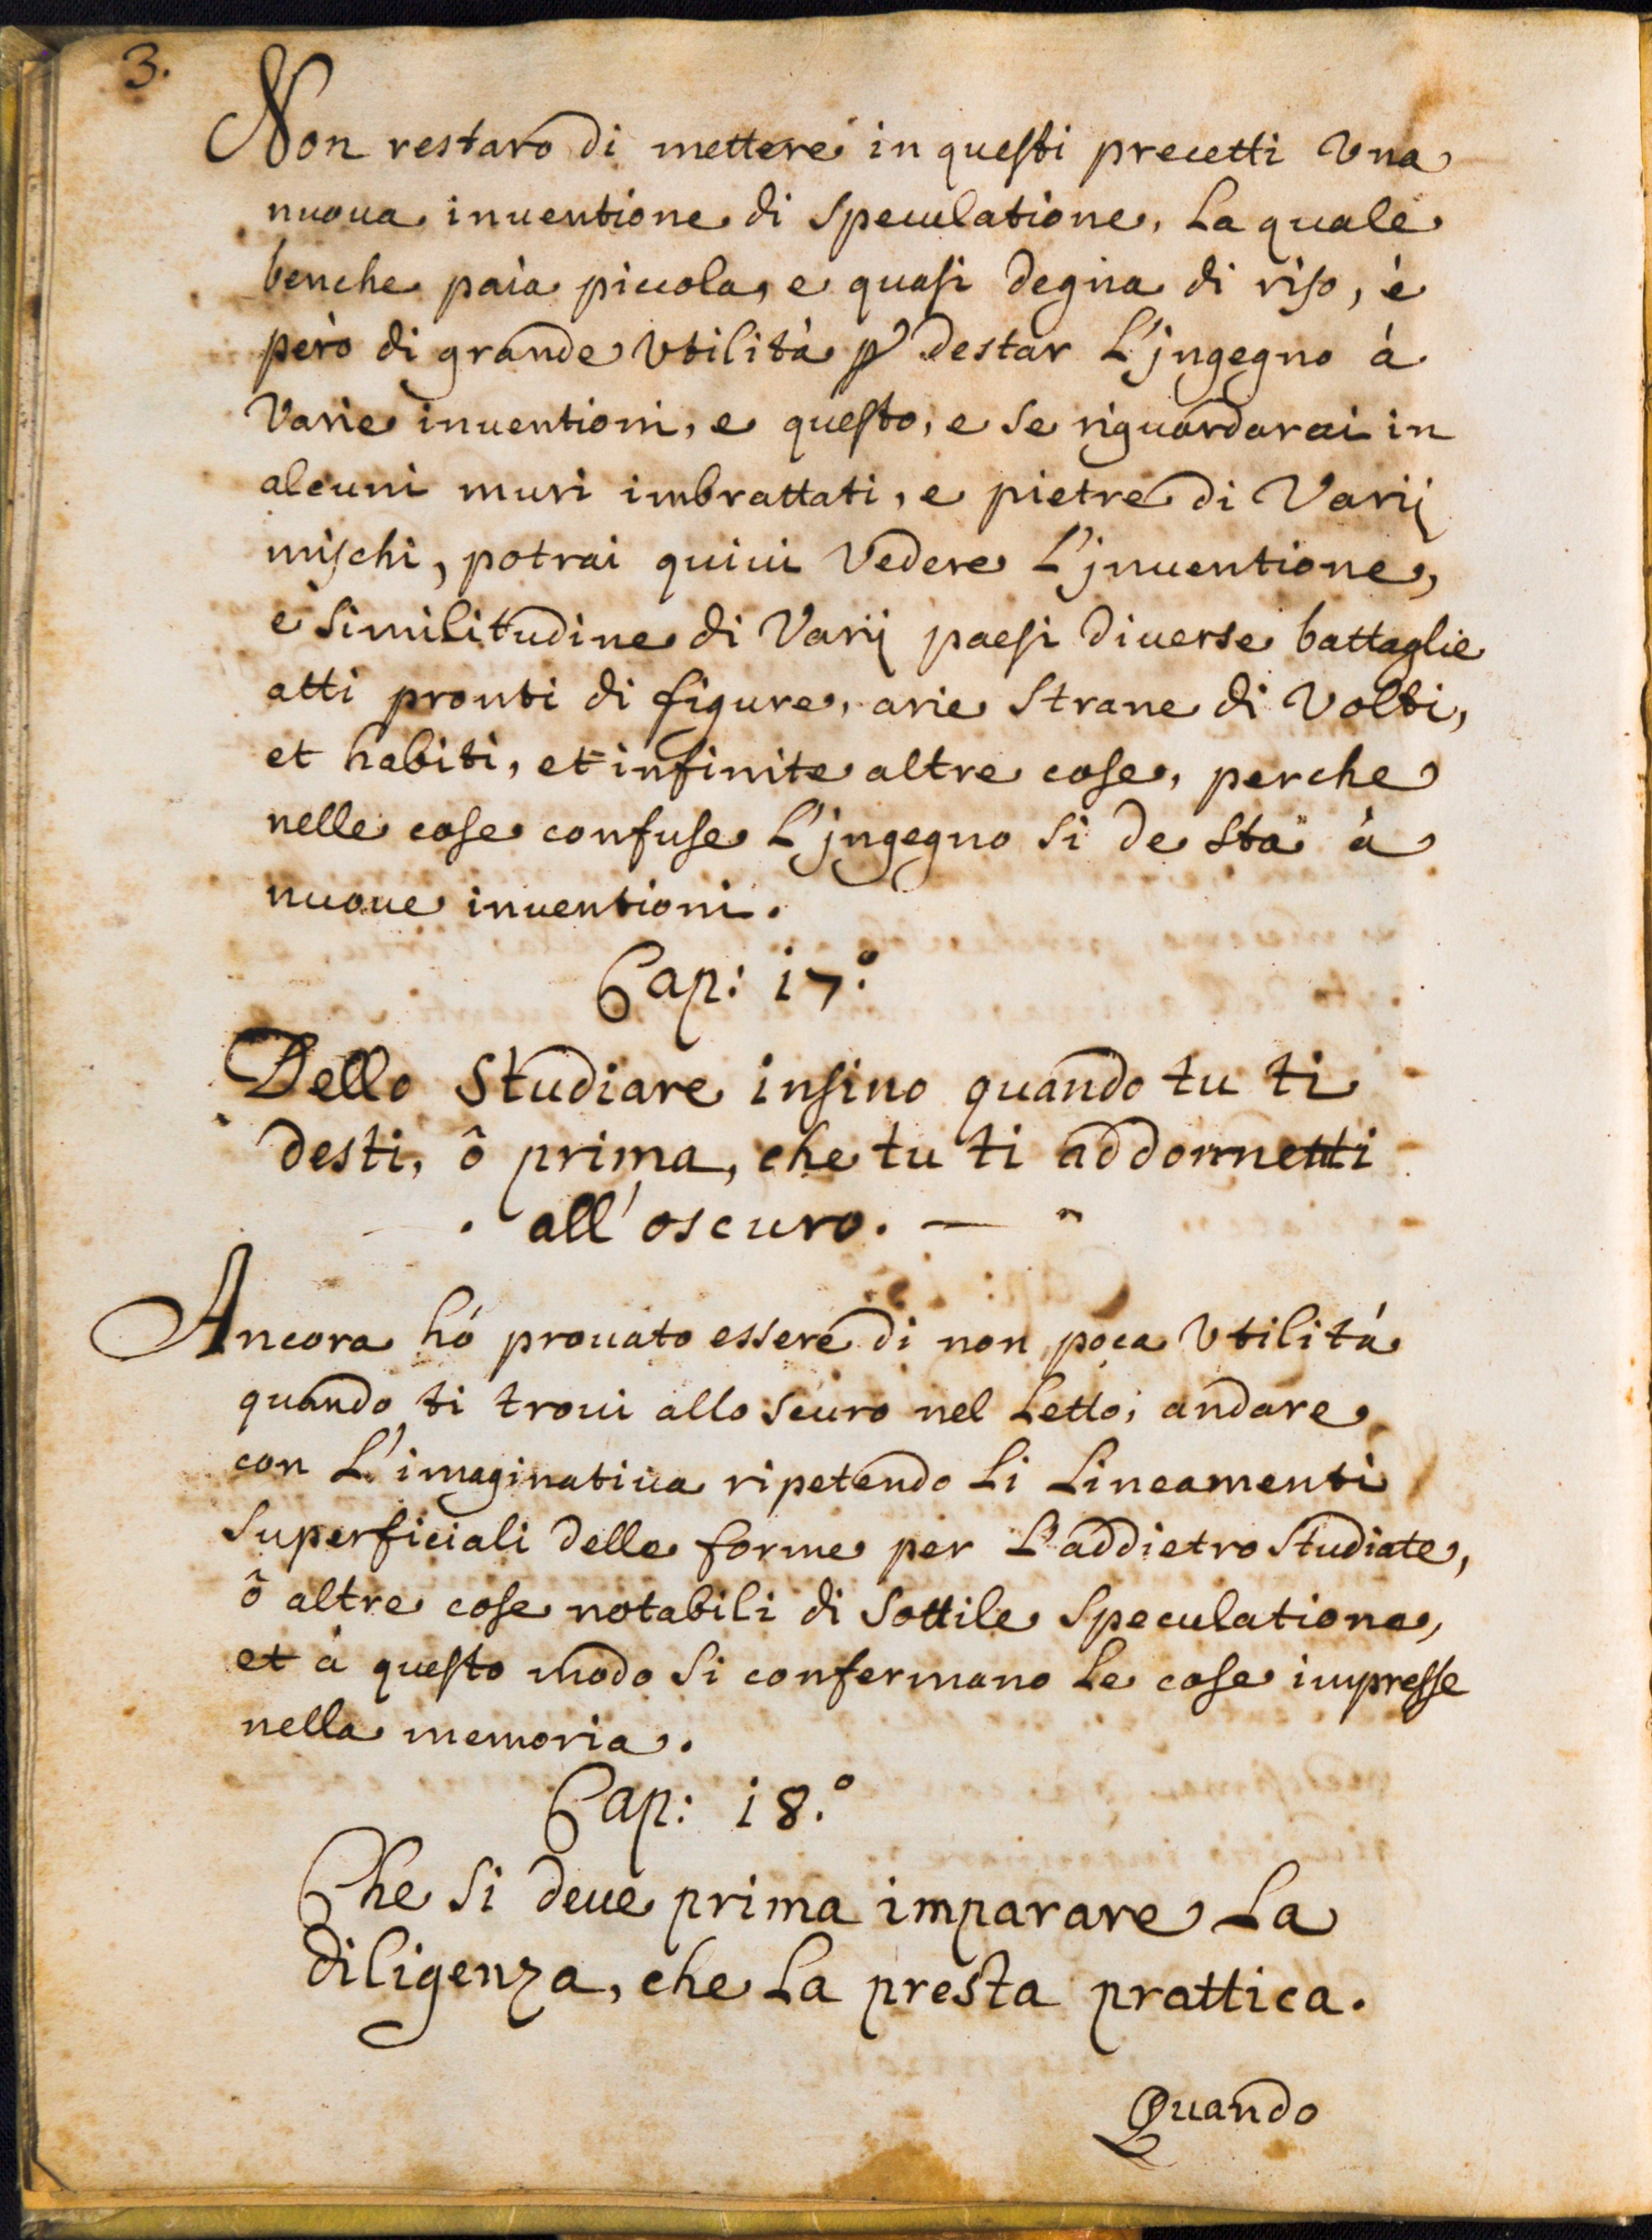 3.
Non restarò di mettere in questi precetti Vna
nuoua inuentione di speculatione, La quale
benche paia piccola, e quasi degna di riso, è
però di grande Vtilità p destar L'jngegno à
Varie inuentioni, e questo, e se riguardarai in
alcuni muri imbrattati, e pietre di Varij
mischi, potrai quiui Vedere L'jnuentione,
e similitudine di Varij paesi diuerse battaglie
atti pronti di figure, arie strane di Volti,
et habiti, et infinite altre cose, perche
nelle cose confuse L'jngegno si desta à
nuoue inuentioni.
Cap: i7.º
Dello Studiare insino quando tu ti
desti, ô prima, che tu ti addormetti
all'oscuro. —
Ancora hó prouato essere di non poca Vtilità
quando ti troui allo scuro nel Letto, andare
con L'imaginatiua ripetendo Li Lineamenti
superficiali delle forme per L'addietro studiate,
ô altre cose notabili di sottile speculatione,
et à questo modo si confermano Le cose impresse
nella memoria.
Cap: i8.º
Che si deue prima imparare La
diligenza, che La presta prattica.
Quando